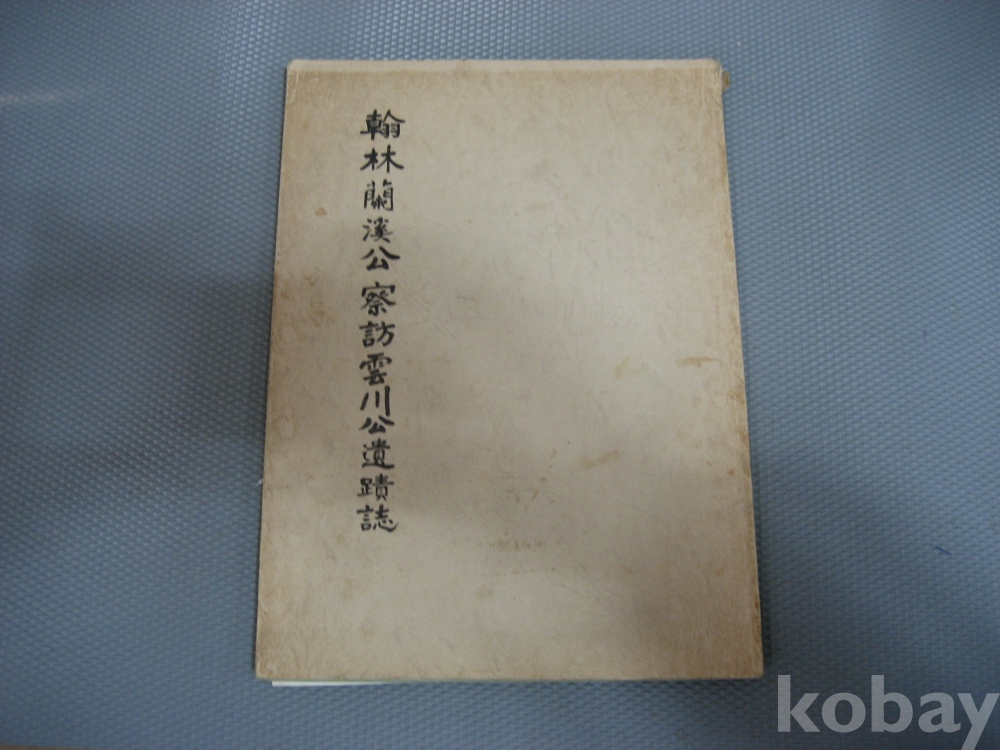 翰林蘭溪公察訪雲川公遺蹟誌
kobay